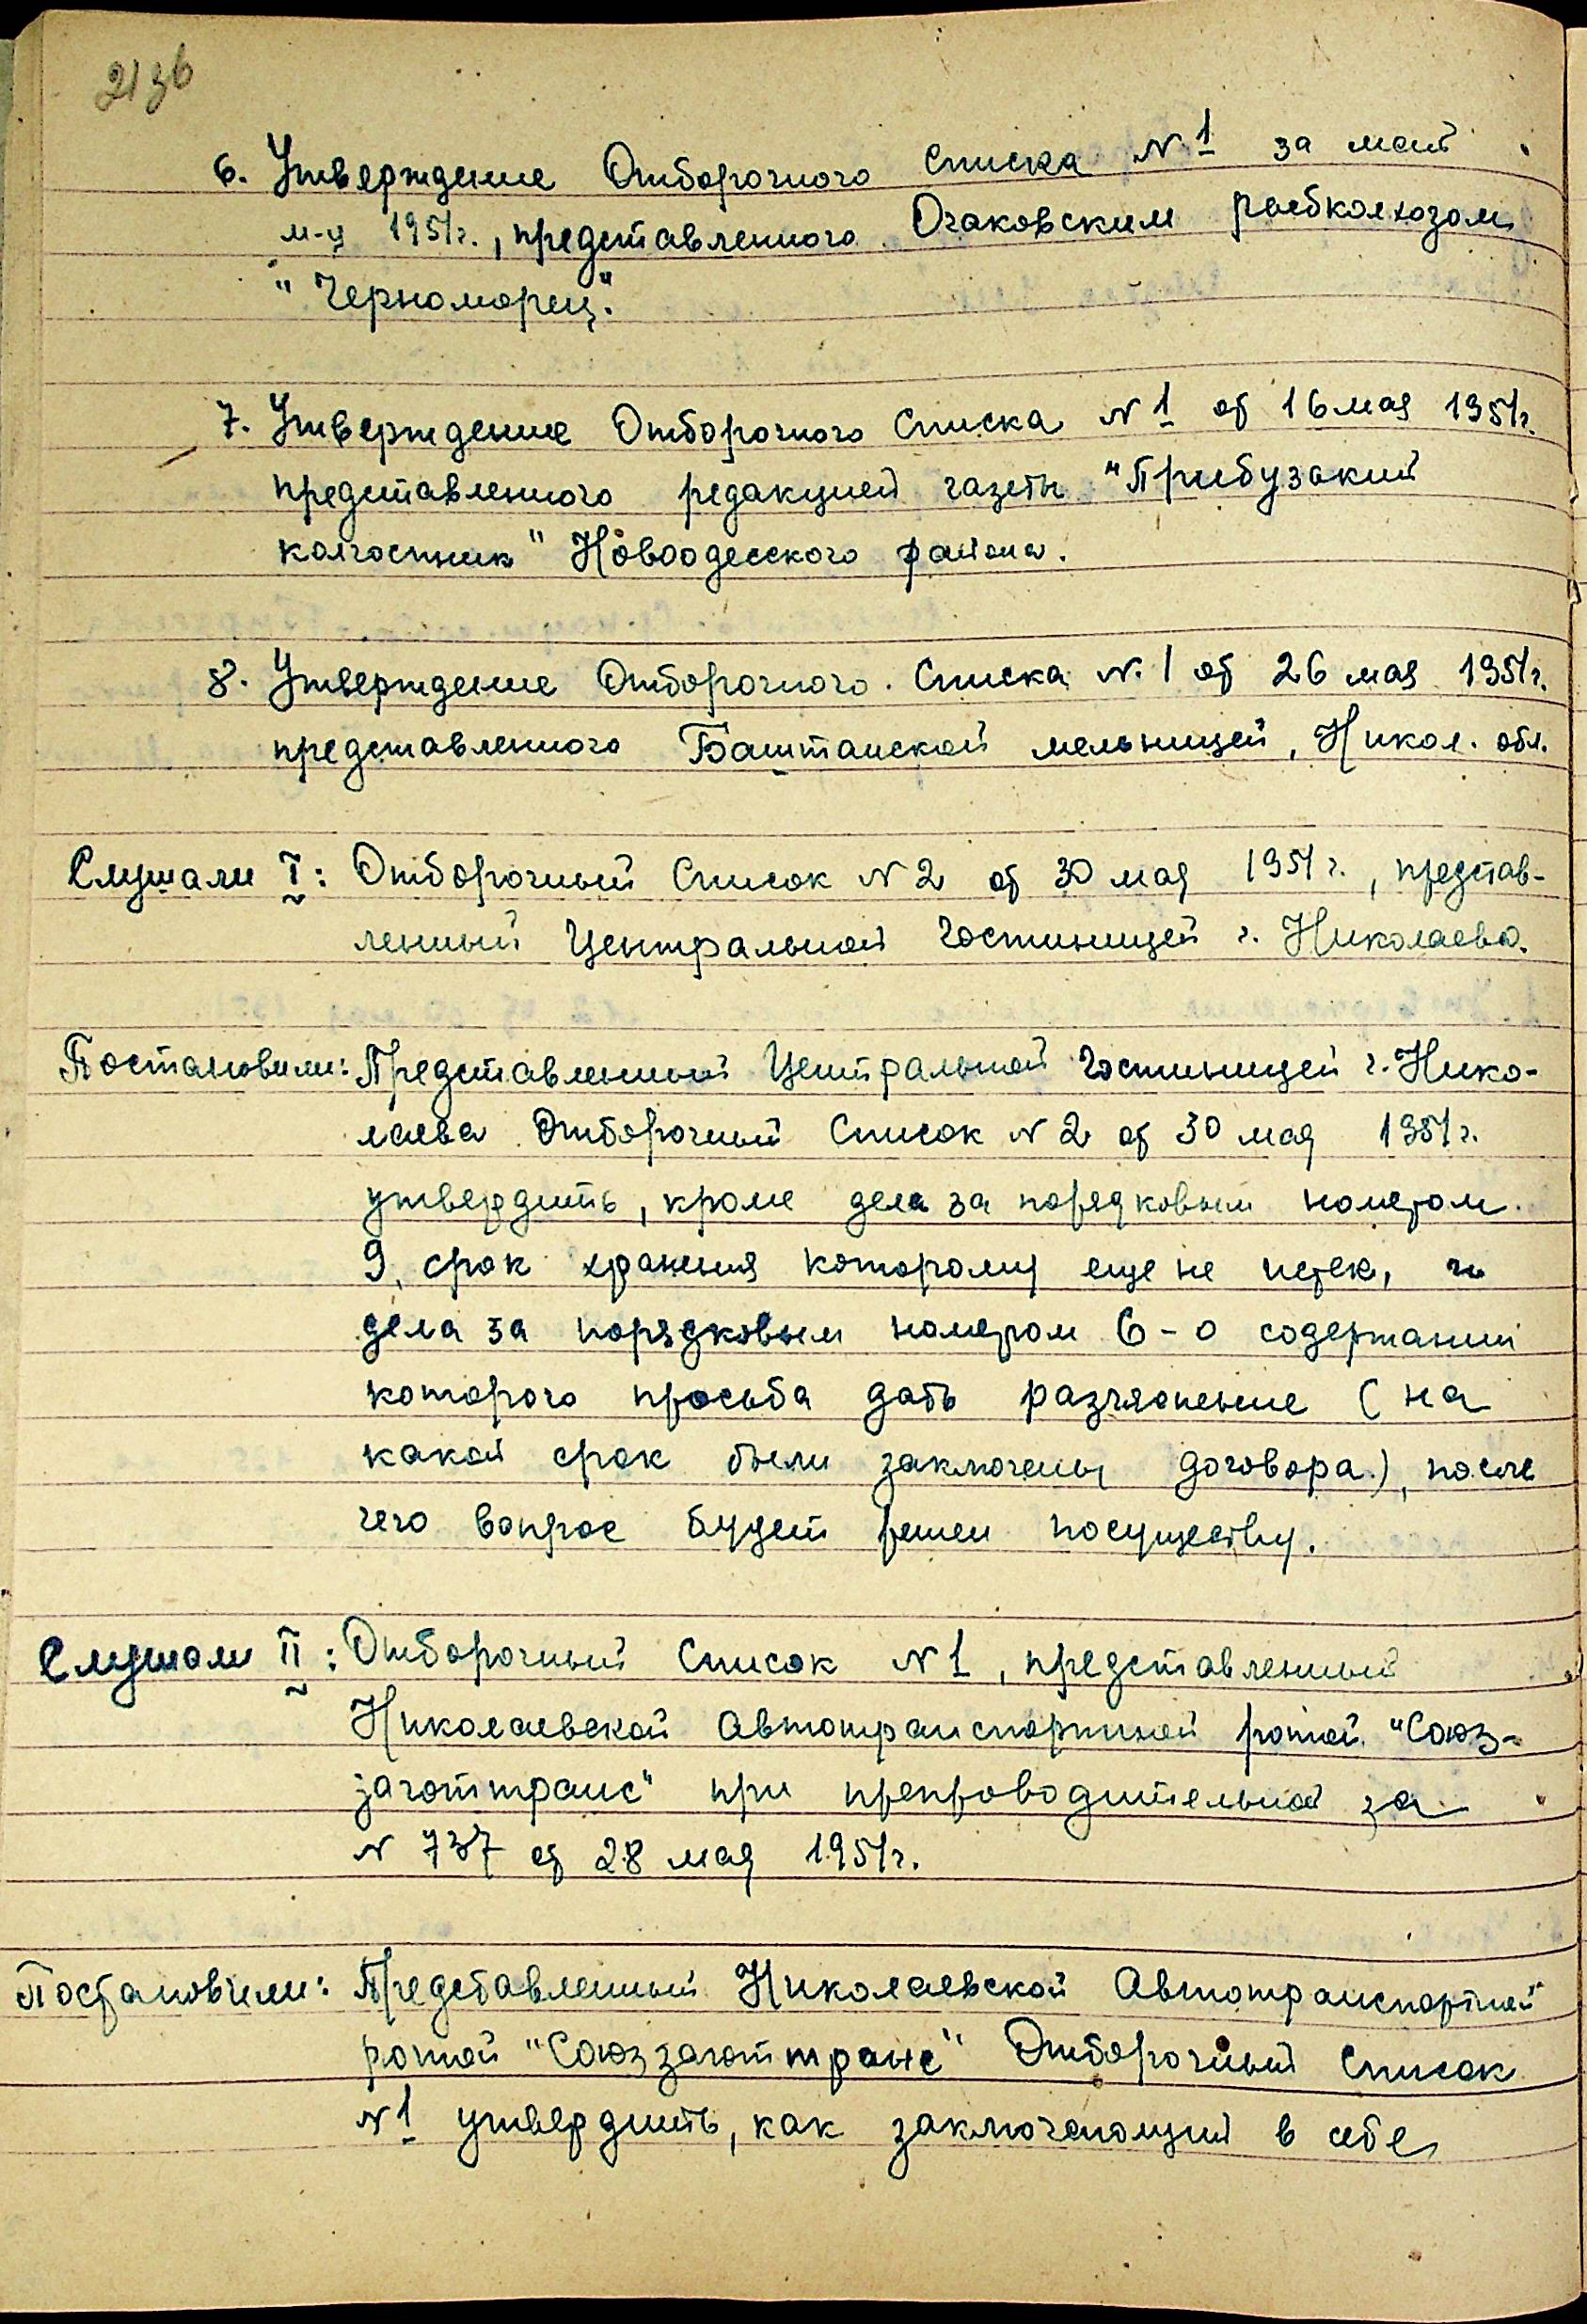 213б
6. Утверждение Отборочного Списка №1 за май
м-ц 1951г., представленного Очаковским рыбколхозом
"Черноморец".
7. Утверждение Отборочного Списка №1 от 16 мая 1951г.
представленного редакцией газеты "Прибузский
колгоспник" Новоодесского района.
8. Утверждение Отборочного Списка №1 от 26 мая 1951г.
представленного Баштанской мельницей, Никол. обл.
Слушали I: Отборочный Список №2 от 30 мая 1951г., представ-
ленный Центральной Гостиницей г. Николаева.
Постановили: Представленный Центральной Гостиницей г. Нико-
лаева Отборочный Список №2 от 30 мая 1951г.
утвердить, кроме дела за порядковым номером
9, срок хранения которому еще не истек, и
дела за порядковым номером 6 - о содержании
которого просьба дать разъяснение (на
какой срок были заключены договора), после
чего вопрос будет решен посуществу.
Слушали II: Отборочный Список №1, представленный
Николаевской Автотранспортной ротой "Союз-
заготтранс" при препроводительной за
№ 737 от 28 мая 1951г.
Постановили: Представленный Николаевской Автотранспортной
ротой "Союззаготтранс" Отборочный Список
№1 утвердить, как заключающий в себе